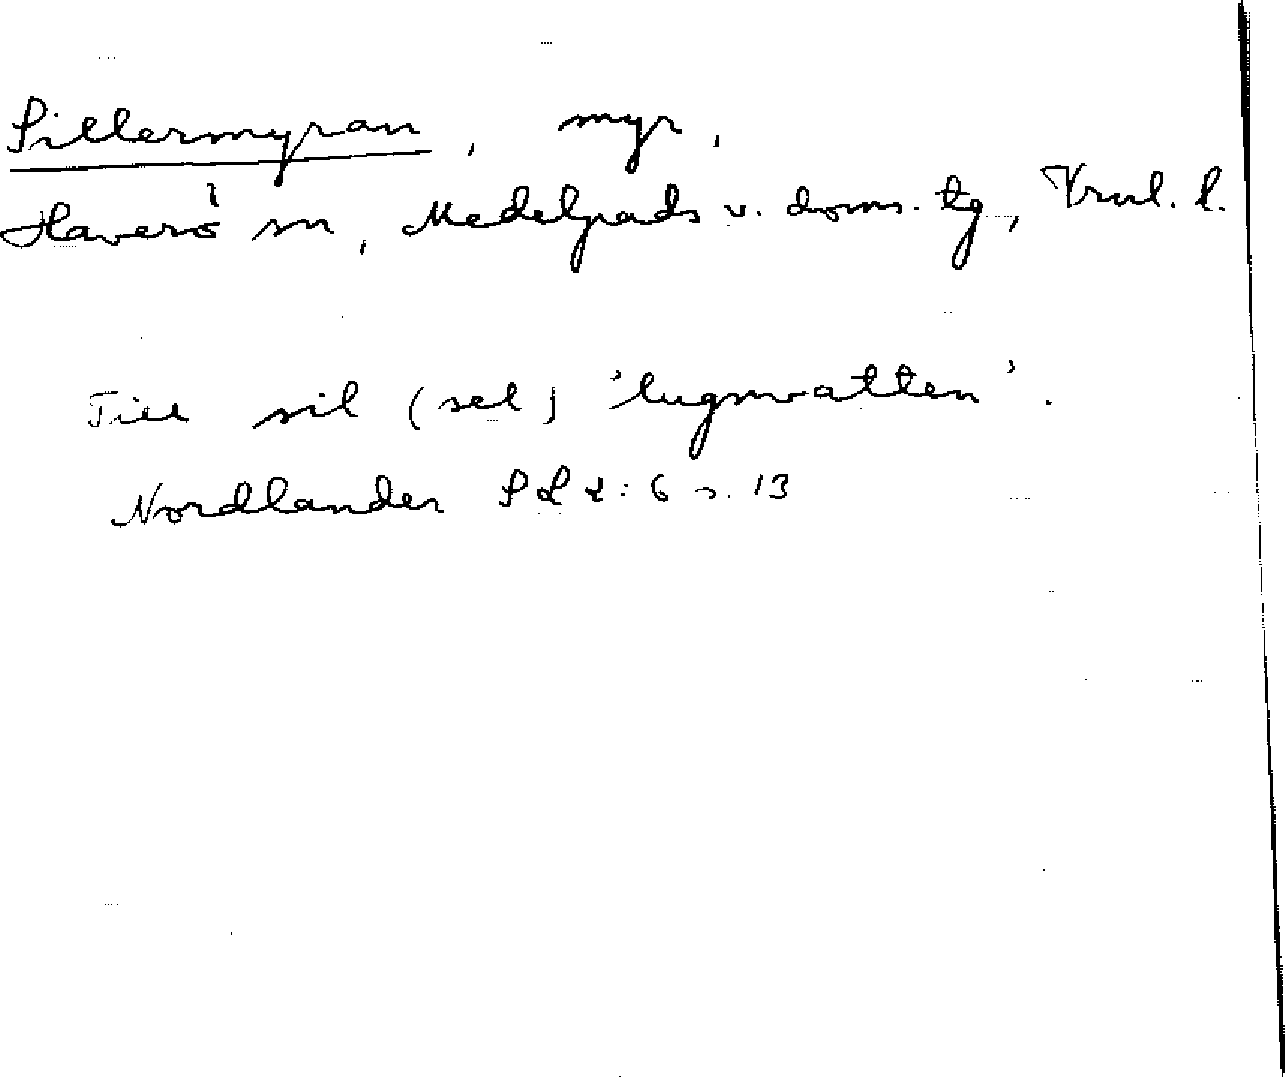 Sillermyran, myr,
Haverö sn, Medelpads v. doms. tg, Vrnl. l.
Till sil (sel) 'lugnvatten'.
Nordlander SL 2:6 s. 13